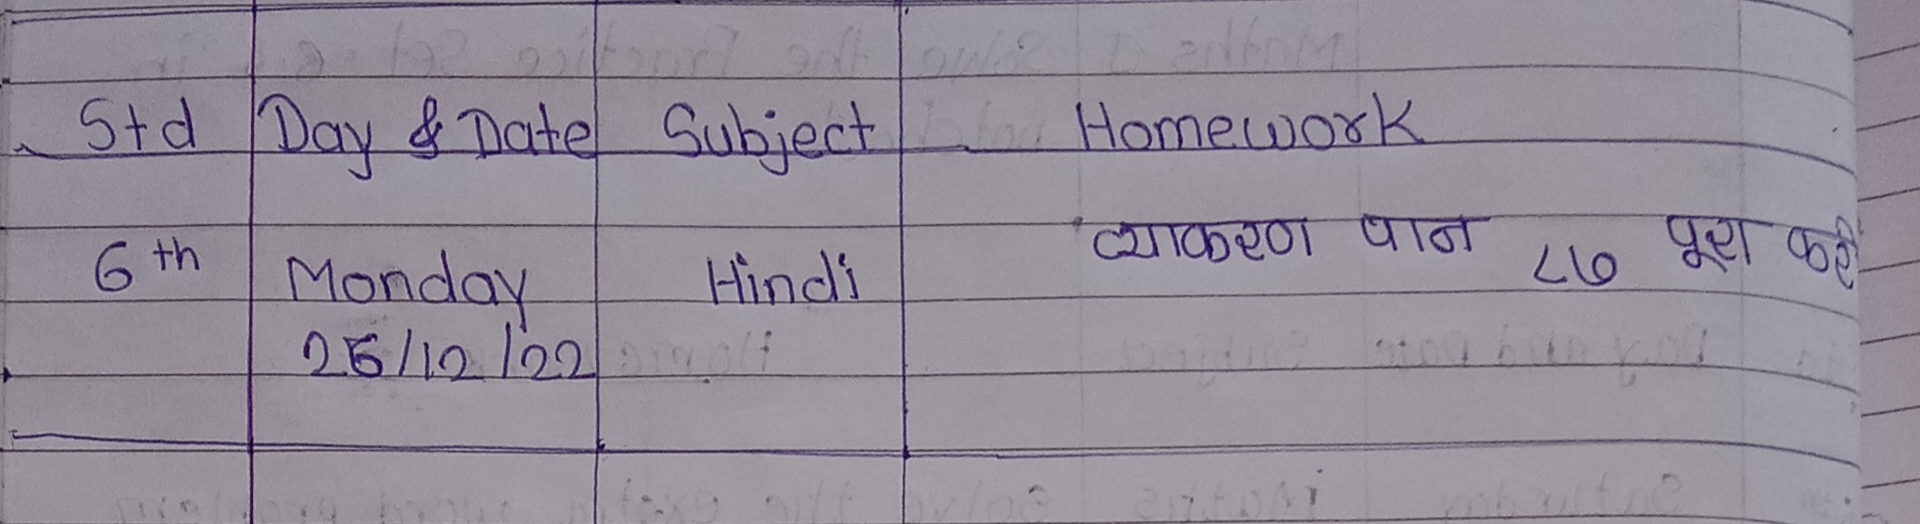 Std Day & Date Subject Homework
6th Monday Hindi व्याकरण पान ८७ पूरा करो
26/12/22